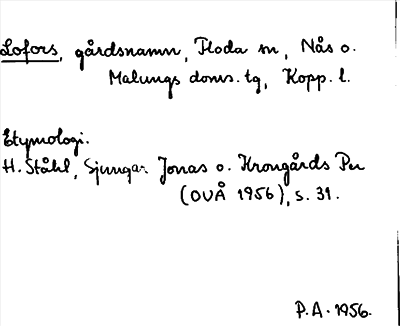 Lofors, gårdsnamn, Floda sn, Nås o.
Malungs doms. tg, Kopp. l.
Etymologi.
H. Ståhl, Sjungar Jonas o. Krongårds Per
(OUÅ 1956), s. 31.
P.A. 1956.